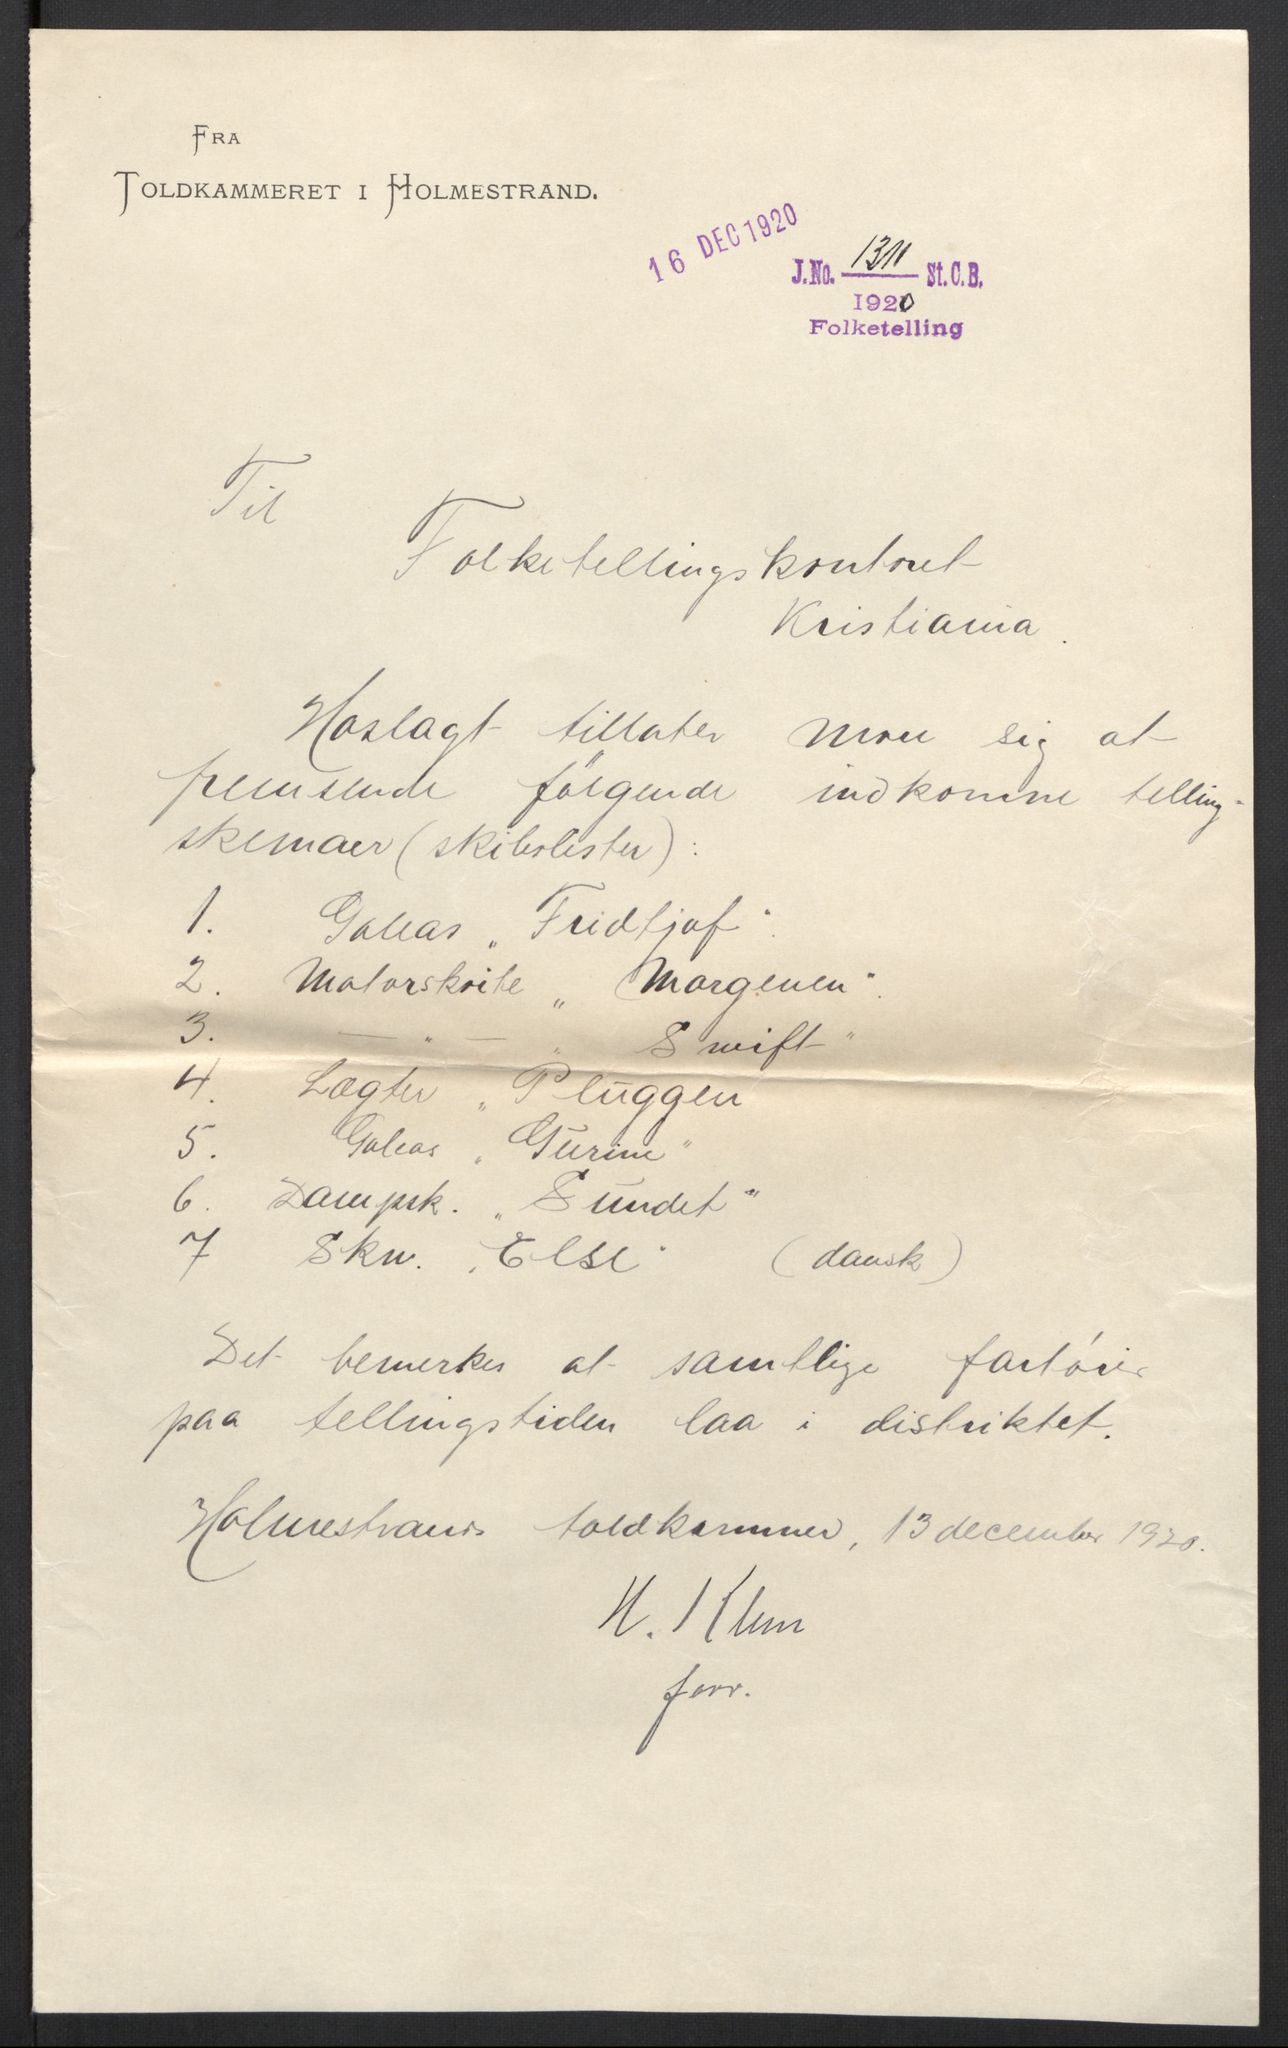 FRA
TOLDKAMMERET I HOLMESTRAND.
16 DEC 1920
J.No. 1311 St.C.B.
1920
Folketelling
Til
Folketellingskontoret
Kristiania.
Hoslagt tillater man sig at
fremsende følgende indkomne telling-
skemaer (skibslister):
1. Galeas „Fridtjof".
2. Motorskøite „Morgenen".
3. — " — „Swift"
4. Lægter „Pluggen
5. Galeas „Gurine"
6. Dampsk. „Sundet"
7 Skn. „Else" (dansk)
Det bemerkes at samtlige fartøier
paa tellingstiden laa i distriktet.
Holmestrands toldkammer, 13 december 1920.
H. Klem
forr.